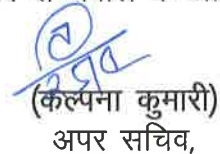 (कल्पना कुमारी)
अपर सचिव,